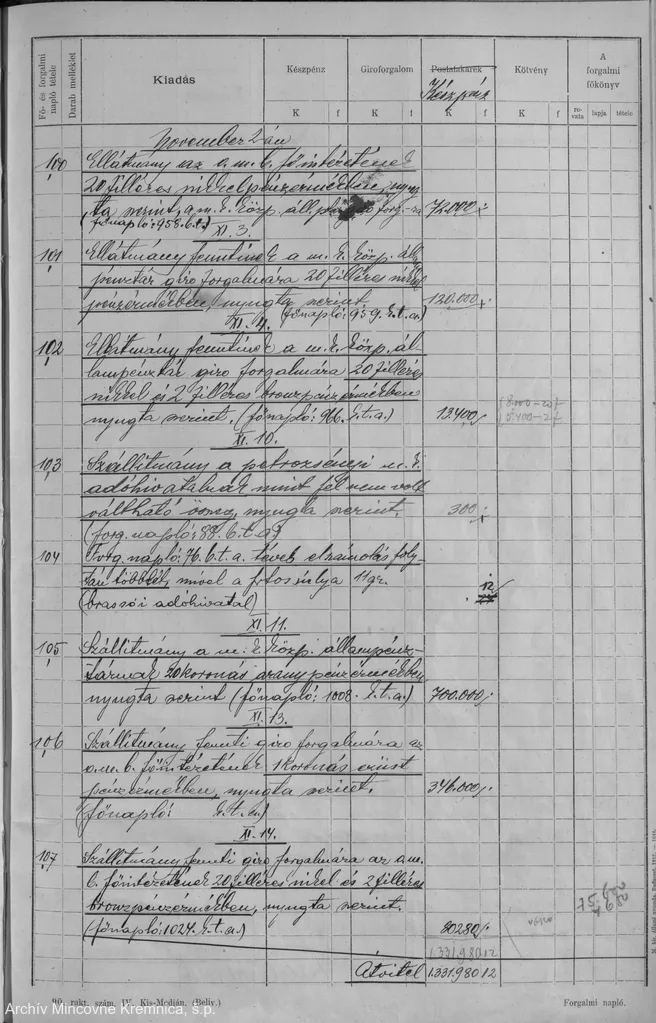 Fő- és forgalmi napló tétele
Darab melléklet
Kiadás
Készpénz
K f
Giroforgalom
K f
Postatakarék
Készpénz
K f
Kötvény
K f
A forgalmi főkönyv
ro-vata lapja tétele
November 2-án
100 Ellátmány az o. m. b. főintézetének
20 filléres nikkelpénzérmékben, nyug-
ta szerint, a m. k. közp. áll. forg.-ra 72.000
(főnapló: 958. b. t.)
XI. 3.
101 Ellátmány fenntinek a m. k. közp. áll.
pénztár giro forgalmára 20 filléres nikkel
pénzérmékben, nyugta szerint 120.000
(főnapló: 959. k. t. a.)
XI. 4.
102 Ellátmány fenntinek a m. k. közp. ál-
lampénztár giro forgalmára 20 filléres
nikkel és 2 filléres bronzpénzérmékben
nyugta szerint. (főnapló: 966. k. t. a.) 13.400
8.000-20f
5.400-2f
XI. 10.
103 Szállítmány a petrozsényi m. k.
adóhivatalnak mint fel nem volt
váltható össz., nyugta szerint. 300
(forg. napló: 88. b. t. a.)
104 Forg. napló: 76. b. t. a. tévek elszámolás foly-
tán többlet, mivel a f-tos súlya 11 gr. 12
(brassói adóhivatal)
XI. 11.
105 Szállítmány a m. k. közp. állampénz-
tárnak 20 koronás aranypénzérmékben
nyugta szerint (főnapló: 1008. k. t. a.) 700.000
XI. 13.
106 Szállítmány fennti giro forgalmára az
o. m. b. főintézetének 1 koronás ezüst
pénzérmékben, nyugta szerint. 346.000
(főnapló: k. t. a.)
XI. 14.
107 Szállítmány fennti giro forgalmára az o. m.
b. főintézetének 20 filléres nikel és 2 filléres
bronzpénzérmékben, nyugta szerint.
(főnapló: 1024. k. t. a.) 80280
75.600
4680
1.331.980 12
Átvitel 1.331.980 12
90. rakt. szám. IV. Kis-Medián. (Beliv.)
Forgalmi napló.
Archív Mincovne Kremnica, š.p.